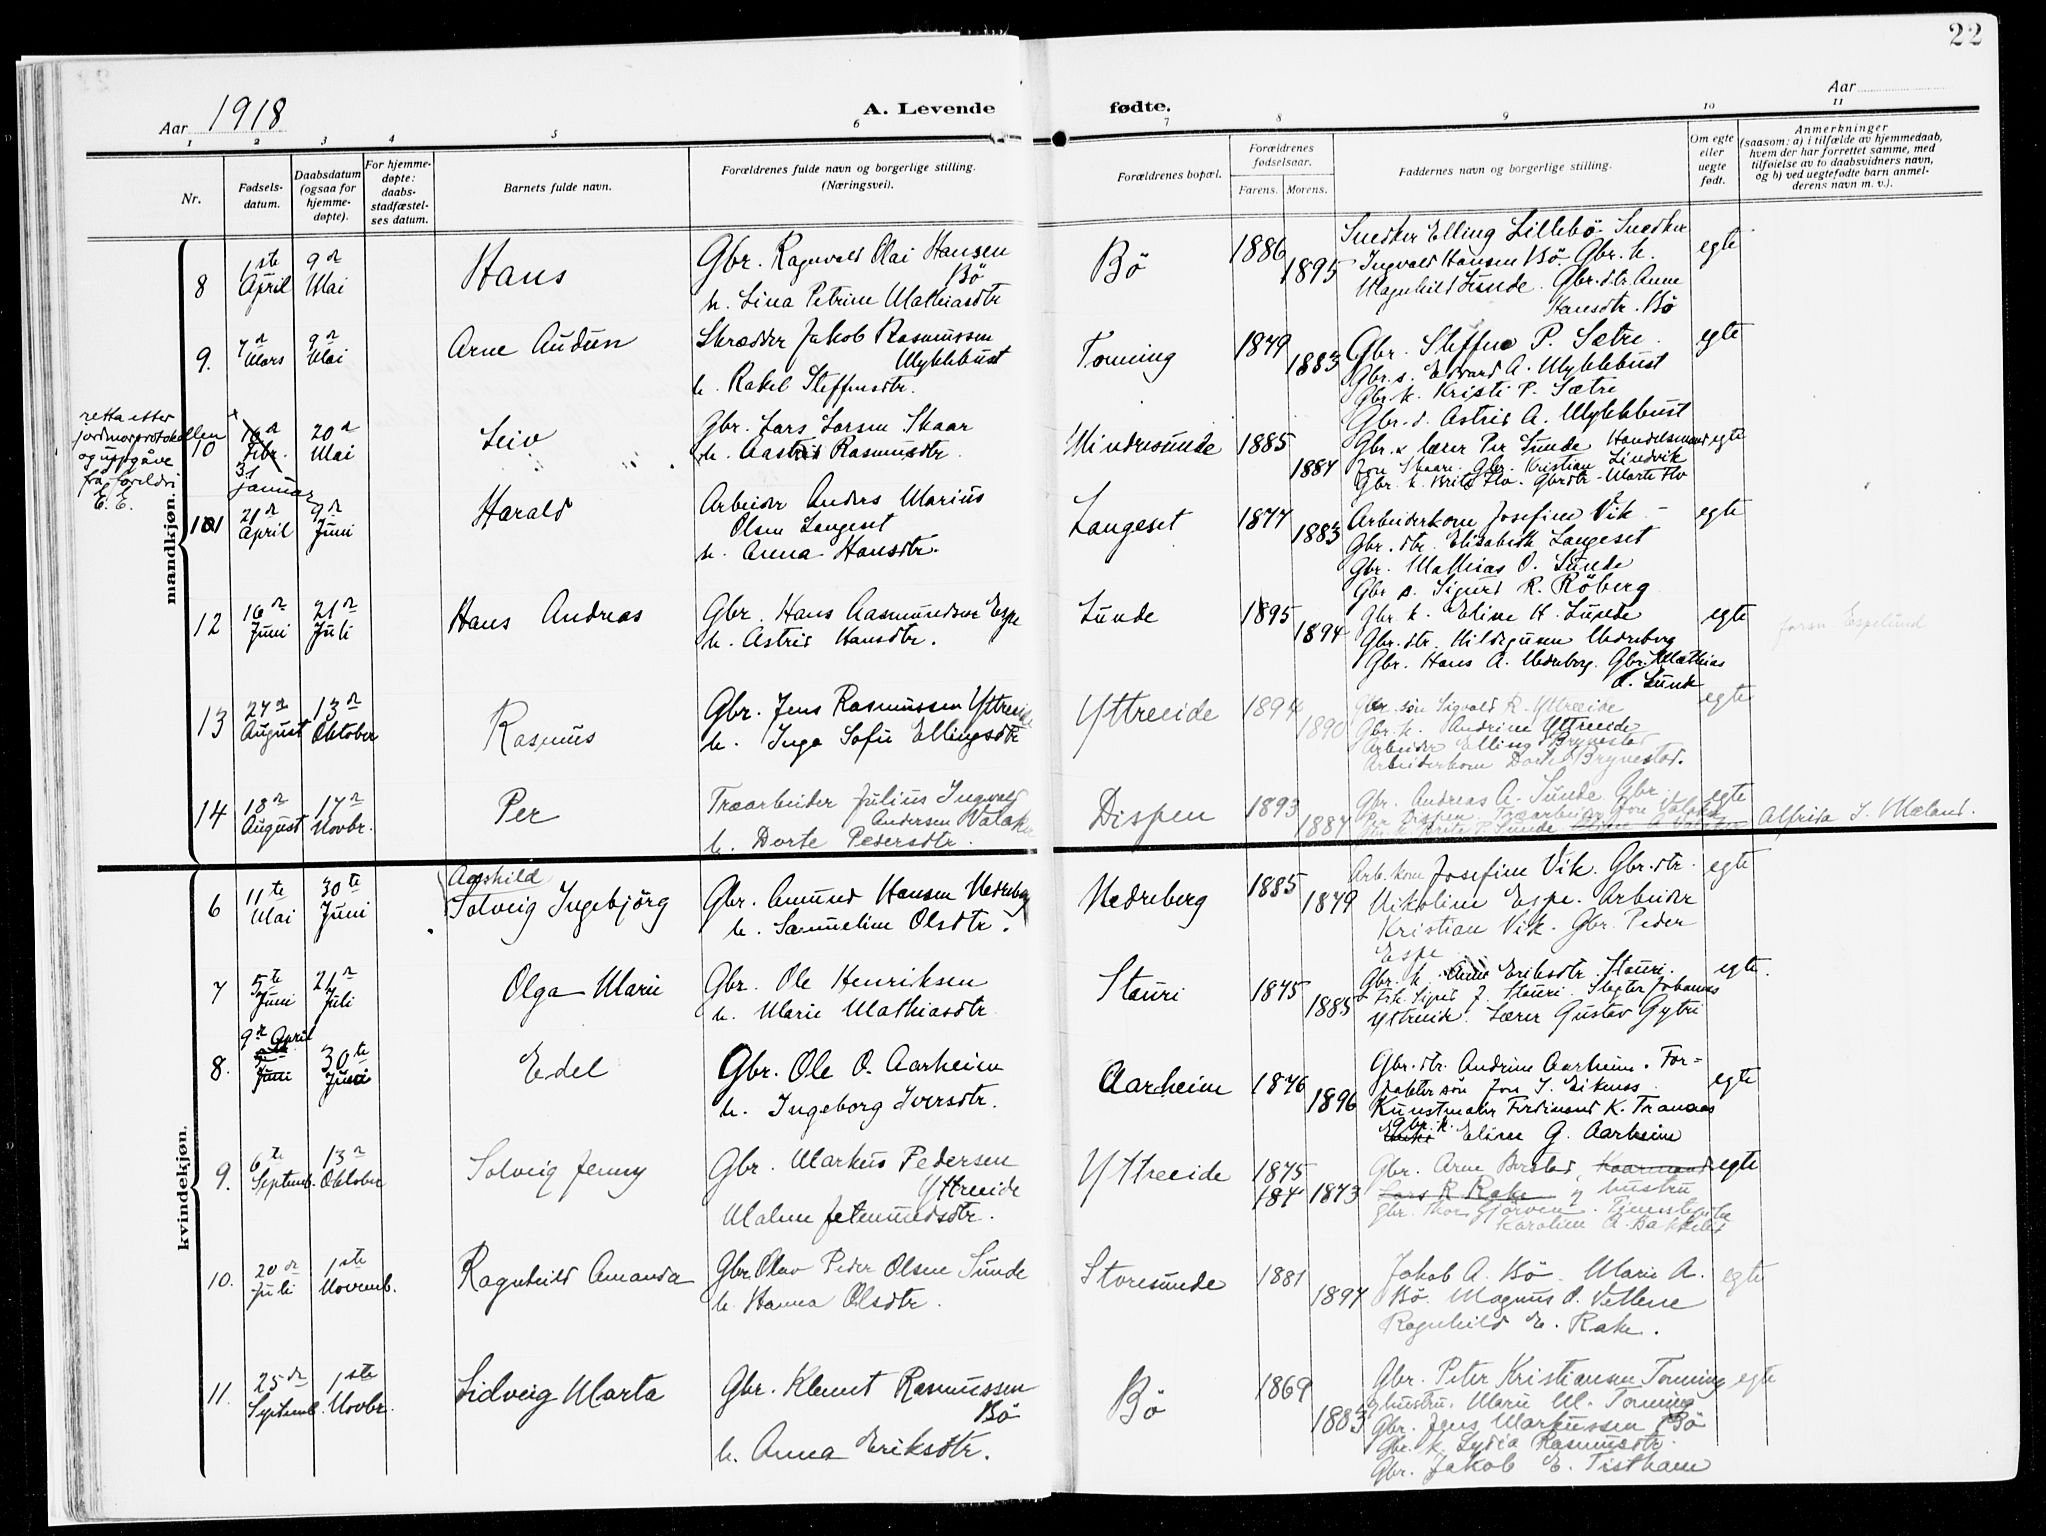 22
Aar 1918
A. Levende fødte.
Aar
1 2 3 4 5 6 7 8 9 10 11
Nr.
Fødsels-
datum.
Daabsdatum
(ogsaa for
hjemme-
døpte).
For hjemme-
døpte:
daabs-
stadfæstel-
ses datum.
Barnets fulde navn.
Forældrenes fulde navn og borgerlige stilling.
(Næringsvei).
Forældrenes bopæl.
Forældrenes
fødselsaar.
Farens. Morens.
Faddernes navn og borgerlige stilling.
Om egte
eller
uegte
født.
Anmerkninger
(saasom: a) i tilfælde av hjemmedaab,
hvem der har forrettet samme, med
tilføielse av to daabsvidners navn,
og b) ved uegtefødte barn anmel-
derens navn m. v.).
mandkjøn.
8
1ste
April
9de
Mai
Hans
Gbr. Ragnvald Olai Hansen
Bö
h. Lina Petrine Mathiasdtr
Bö
1886
1895
Snedker Elling Lillebö Snedker
Ingvald Hansen Bö. Gbr. k.
Magnhild Sunde. Gbr. dtr. Anne
Hansdtr. Bö
egte
9.
7de
Mars
9de
Mai
Arne Audun
Skrædder Jakob Rasmussen
Myklebust
h. Rakel Steffensdtr.
Tonning
1879
1883
Gbr. Steffen P. Sætre
Gbr. s. Edvard A. Myklebust
Gbr. k. Kristi P. Sætre
Gbr. d. Astrid A. Myklebust
egte
retta etter
jordmorprotokollen
og uppgåve
frå foreldri
E. E.
10
16de
Febr.
31
januar
20de
Mai
Leiv
Gbr. Lars Larsen Skaar
h. Aastrid Rasmusdtr.
Mindresunde
1885
1887
Gbr. & lærer Per Sunde Handelsmand
Jon Skaare. Gbr. Kristian Lindvik
Gbr. k. Brite Flo. Gbrdtr. Marte Flo
egte
11
21de
April
9de
Juni
Harald
Arbeider Anders Marius
Olsen Langeset
h. Anna Hansdtr.
Langeset
1877
1883
Arbeiderkone Josefine Vik
Gbr. dtr. Elisabeth Langeset
Gbr. Mathias O. Sunde
Gbr. s. Sigurd R. Röberg
egte
12
16de
Juni
21de
Juli
Hans Andreas
Gbr. Hans Aasmundsen Espe
h. Astrid Hansdtr.
Sunde
1895
1894
Gbr. k. Eline H. Sunde
Gbr. dtr. Hildegunn Nedreberg
Gbr. Hans A. Nedreberg. Gbr. Mathias
O. Sunde
egte
forsn. Espelund
13
27de
August
13de
Oktober
Rasmus
Gbr. Jens Rasmussen Yttreeide
h. Inga Sofie Ellingsdtr
Yttreeide
1894
1890
Gbr. sön Sigvald R. Yttreeide
Gbr. k. Andrine Yttreeide
Arbeider Elling Brynestad
Arbeiderkone Dorte Brynestad.
egte
14
18de
August
17de
Novbr.
Per
Træarbeider Julius Ingvald
Andersen Valaker
h. Dorte Pedersdtr.
Dispen
1893
1887
Gbr. Andreas A. Sunde Gbr.
Per Dispen. Træarbeider Jon Valaker
egte
Alfrida J. Mæland.
kvindekjøn.
6
11te
Mai
30te
Juni
Aashild
Solveig Ingebjörg
Gbr. Amund Hansen Nedreberg
h. Samueline Olsdtr.
Nedreberg
1885
1879
Arb. kone Josefine Vik. Gbr. dtr.
Nikoline Espe. Arbeider
Kristian Vik. Gbr. Peder
Espe
egte
7
5te
Juni
21de
Juli
Olga Marie
Gbr. Ole Henriksen
h. Marie Mathiasdtr.
Stauri
1875
1885
Gbr. k. Anne Eriksdtr. Stauri.
Frk. Sigrid J. Stauri. Slagter Johannes
Yttreeide. Lærer Gustav Gytri
egte.
8.
9de April
Juni
30te
Juni
Edel
Gbr. Ole O. Aarheim
h. Ingeborg Iversdtr.
Aarheim
1876
1896
Gbr. dtr. Andrine Aarheim. For-
pakter sön Jon J. Eikenes
Kunstmaler Ferdinand K. Tranaas
Gbr. k.
Eline G. Aarheim
egte
9.
6te
Septemb.
13de
Oktober
Solveig Jenny
Gbr. Markus Pedersen
Yttreeide
Malene Jetmundsdtr.
Yttreeide
1875
187 1873
Gbr. Arne Berstad, Kaarmand
Lars R. Rake og hustru
Gbr. Thor Gjörven. Tjenestepike
Karoline A. Bakkelid
egte
10.
20de
Juli
1ste
Novemb.
Ragnhild Amanda
Gbr. Olav Peder Olsen Sunde
h. Hanna Olsdtr.
Storesunde
1881
1897
Jakob A. Bö. Marie A.
Bö. Magnus O. Vettene
Ragnhild E. Rake.
egte
11.
25de
Septemb.
1ste
Novbr.
Lidveig Marta
Gbr. Klemet Rasmussen
Bö
h. Anna Eriksdtr.
Bö
1869
1883
Gbr. Peter Kristiansen Tonning
hustru. Marie M. Tonning
Gbr. Jens Markussen Bö
Gbr. k. Lydia Rasmusdtr.
Gbr. Jakob E. Tistham
egte